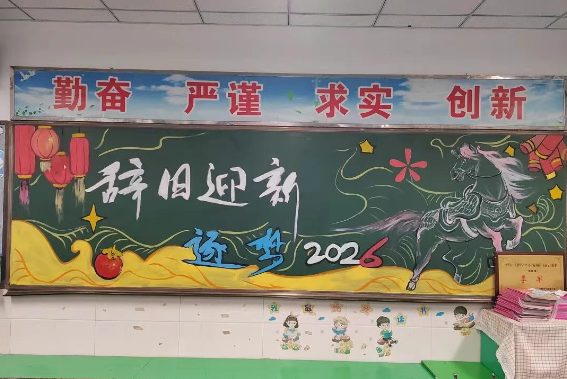 勤奋 严谨 求实 创新
辞旧迎新
逐梦 2026